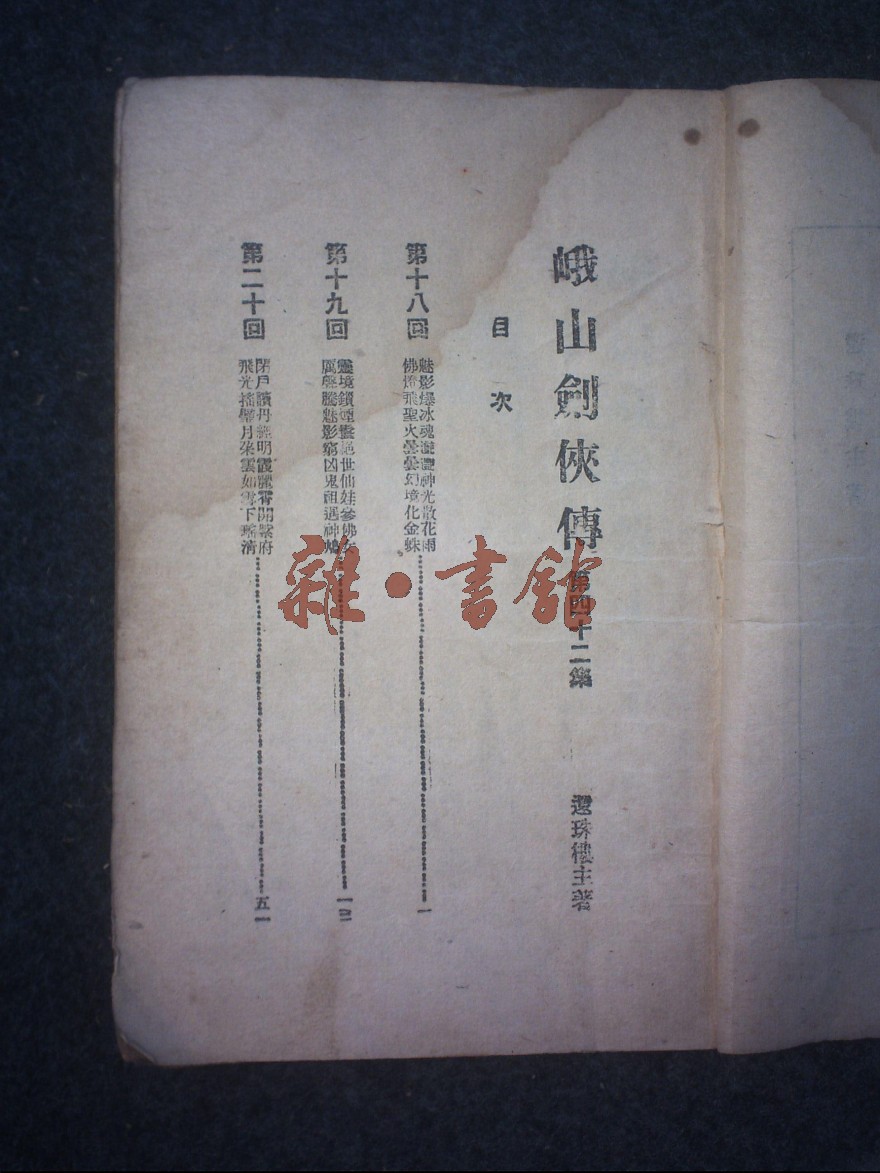 峨山劍俠傳 第四十二集 還珠樓主著
目次
第十八回
魅影爆冰魂灩灩神光散花雨
佛燈飛聖火曇曇幻境化金蛛
一
第十九回
靈境鎖煙雲絕世仙娃參佛女
厲聲騰魅影窮凶鬼祖遇神鳩
一二
第二十回
閉戶讀丹經明霞麗霄開紫府
飛光搖璧月朵雲如雪下瑤清
五一
雜·書館